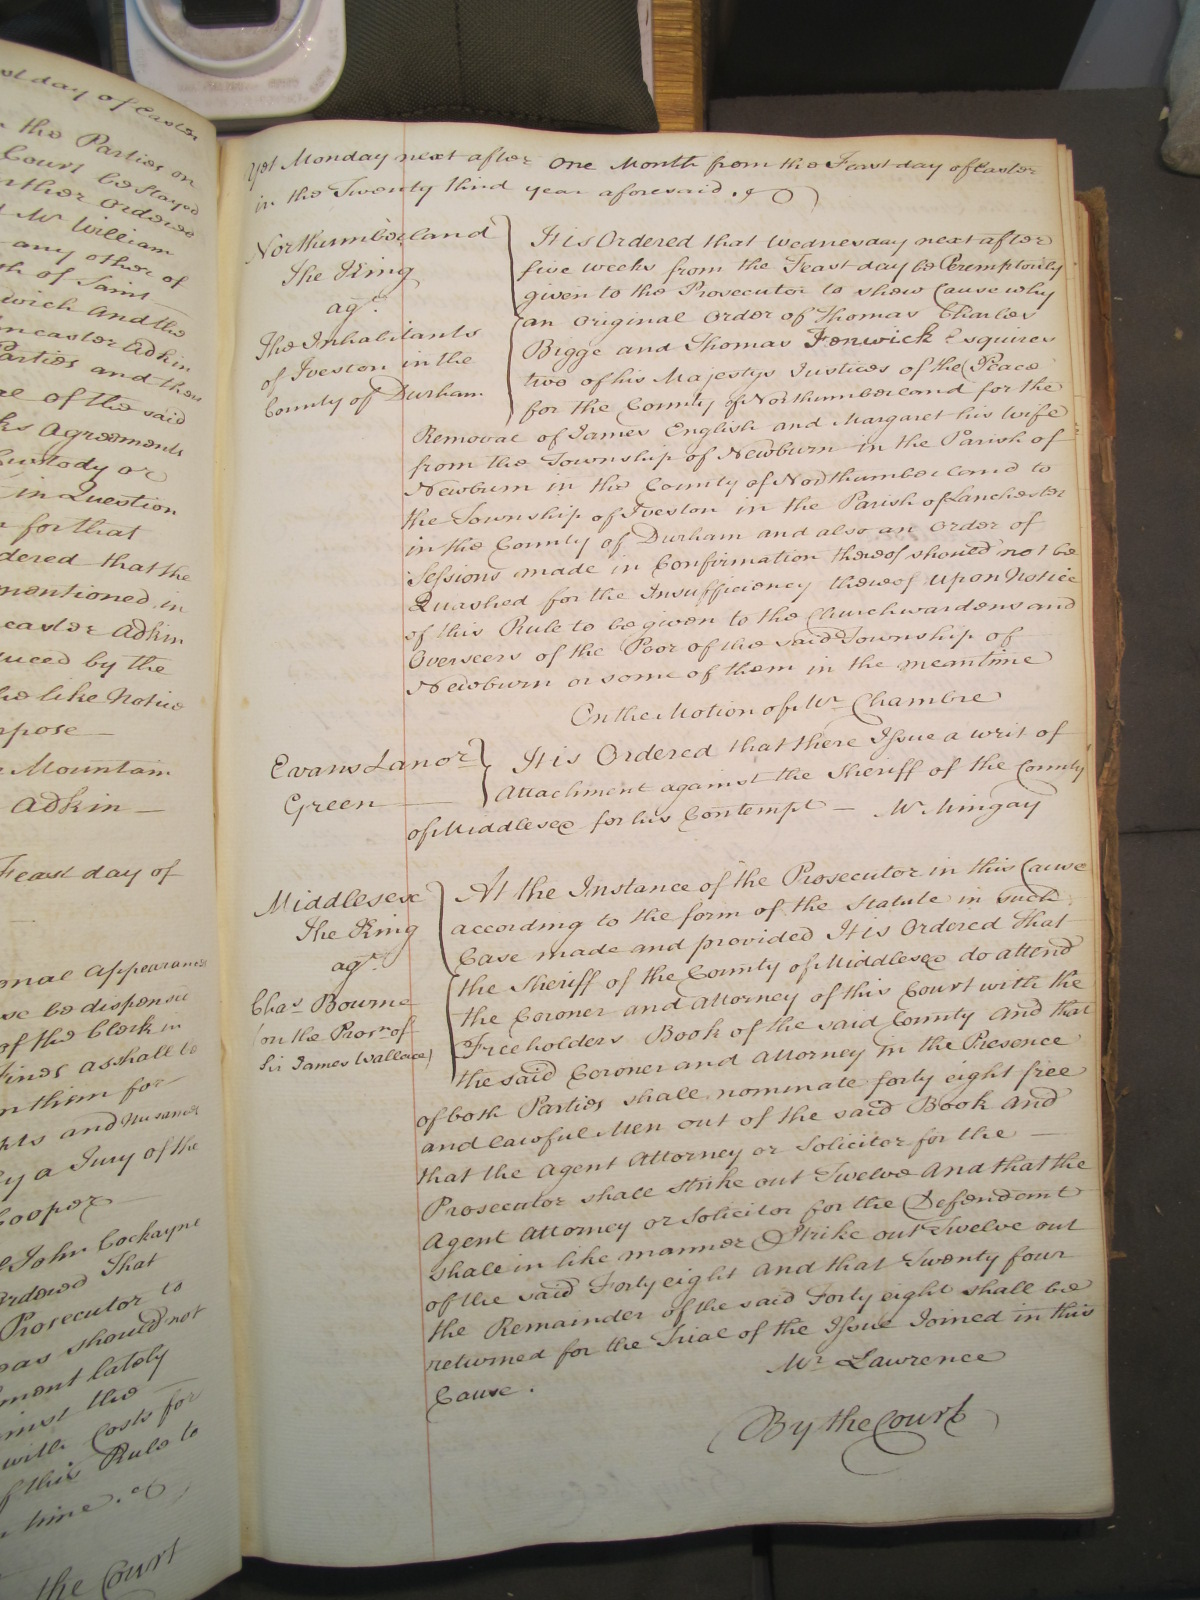 st day of Easter
the Parties on
Court be Stayed
further Ordered
Mr. William
any other of
of Saint
wich And the
ncaster Adkin
Parties and then
of the said
Agreements
Custody or
in Question
for that
dered that the
mentioned in
caster Adkin
duced by the
he like Notice
rpose
Mountain
Adkin
Feast day of
onal Appearance
be dispensed
of the Clerk in
Fines as shall be
them for
and Nusances
by a Jury of the
Cooper
John Cockayne
Ordered That
Prosecutor to
should not
ment lately
inst the
with Costs for
of this Rule to
time
the Court
Yet Monday next after One Month from the Feast day of Easter
in the Twenty third year aforesaid.
Northumberland
The King
agt.
The Inhabitants
of Iveston in the
County of Durham
It is Ordered that Wednesday next after
five weeks from the Feast day be Peremptorily
given to the Prosecutor to shew Cause why
an Original Order of Thomas Charles
Bigge and Thomas Fenwick Esquires
two of his Majestys Justices of the Peace
for the County of Northumberland for the
Removal of James English and Margaret his Wife
from the Township of Newburn in the Parish of
Newburn in the County of Northumberland to
the Township of Iveston in the Parish of Lanchester
in the County of Durham and also an Order of
Sessions made in Confirmation thereof should not be
Quashed for the Insufficiency thereof Upon Notice
of this Rule to be given to the Churchwardens and
Overseers of the Poor of the said Township of
Newburn or some of them in the meantime
On the Motion of Mr. Chambre
Evans Lanor
Green
It is Ordered that there Issue a writ of
Attachment against the Sheriff of the County
of Middlesex for his Contempt — Mr. Mingay
Middlesex
The King
agt.
Chas. Bourne
(on the Prosn. of
Sir James Wallace)
At the Instance of the Prosecutor in this Cause
according to the form of the Statute in such
Case made and provided It is Ordered that
the Sheriff of the County of Middlesex do attend
the Coroner and Attorney of this Court with the
Freeholders Book of the said County And that
the said Coroner and Attorney in the Presence
of both Parties shall nominate forty eight free
and lawful Men out of the said Book And
that the Agent Attorney or Solicitor for the —
Prosecutor shall strike out Twelve And that the
Agent Attorney or Solicitor for the Defendant
shall in like manner Strike out Twelve out
of the said Forty eight And that Twenty four
the Remainder of the said Forty eight shall be
returned for the Trial of the Issue Joined in this
Cause.
Mr. Lawrence
By the Court